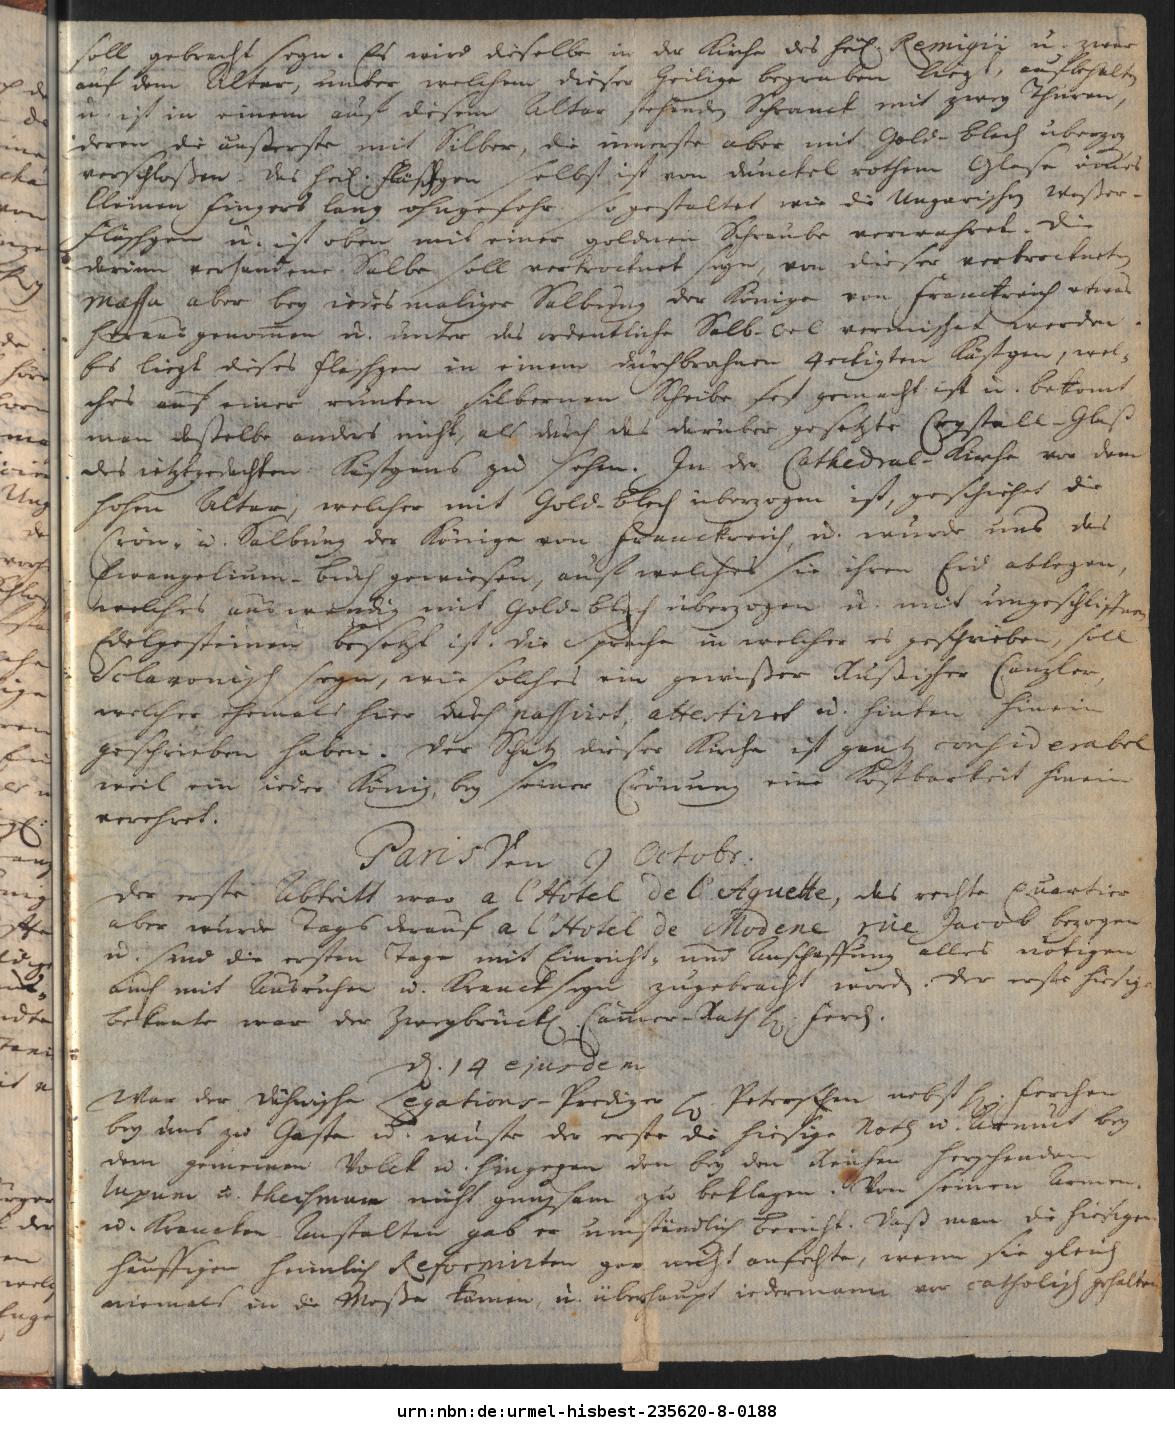 soll gebracht seyn. Es wird dieselbe in der Kirche des heil. Remigii u. zwar
auf dem Altar, unter welchem dieser Heilige begraben liegt, aufbehalten
u. ist in einem auf diesem Altar stehenden Schranck mit zwey Thüren,
deren die äußerste mit Silber, die innerste aber mit Gold-blech überzog
verschloßen. Das heil. Fläschgen selbst ist von dunckel rothem Glase eines
kleinen Fingers lang ohngefehr so gestaltet wie die Ungarischen Waßer-
Fläschgen u. ist oben mit einer goldnen Schraube verwahret. Die
darinn vorhandene Salbe soll vertrocknet seyn, von dieser vertrockneten
Massa aber bey iedesmaliger Salbung der Könige von Franckreich etwas
herausgenommen u. unter das ordentliche Salb-Oel vermischet werden.
Es liegt dieses Fläschgen in einem durchbrochnen 4eckigten Kästgen, wel-
ches auf einer runden silbernen Scheibe fest gemacht ist u. bekomt
man daßelbe anders nicht, als durch das darüber gesetzte Crystall-Glaß
des ietztgedachten Kästgens zu sehen. In der Cathedral-Kirche vor dem
hohen Altar, welcher mit Gold-blech überzogen ist, geschiehet die
Crön- u. Salbung der Könige von Franckreich, u. wurde uns das
Evangelium-buch gewiesen, auf welches sie ihren Eid ablegen,
welches auswendig mit Gold-blech überzogen u. mit ungeschliffnen
Edelgesteinen besetzt ist. Die Sprache in welcher es geschrieben, soll
Sclavonisch seyn, wie solches ein gewißer Rußischer Canzler,
welcher ehemals hier durch passiret, attestiret u. hinten hinein
geschrieben haben. Der Schatz dieser Kirche ist gantz considerabel
weil ein ieder König, bey seiner Crönung eine Kostbarkeit hinein
verehret.
Paris den 9 Octobr.
Der erste Abtritt war a l'Hotel de l'Aguette, das rechte Quartier
aber wurde Tags darauf a l'Hotel de Modene rüe Jacob bezogen
u. sind die ersten Tage mit Einricht- und Anschaffung alles nötigen
auch mit Ausruhen u. Kranckseyn zugebracht word. Der erste hiesige
bekante war der Zweybrück. Cammer-Rath H. Ferch.
d. 14 ejusdem
War der Dähnische Legations-Prediger H. Petersen nebst H. Ferchen
bey uns zu Gaste u. wuste der erste die hiesige Noth u. Armut bey
dem gemeinen Volck u. hingegen den bey den Reichen herschenden
luxum u. nicht gungsam zu beklagen. Von seinen Armen-
u. Krancken Anstalten gab er umständlich bericht. Daß man die hiesigen
häuffigen heimlich Reformirten gar nicht anfechte, wenn sie gleich
niemals in die Meße kämen, u. überhaupt iedermann vor catholisch gehalten
urn:nbn:de:urmel-hisbest-235620-8-0188